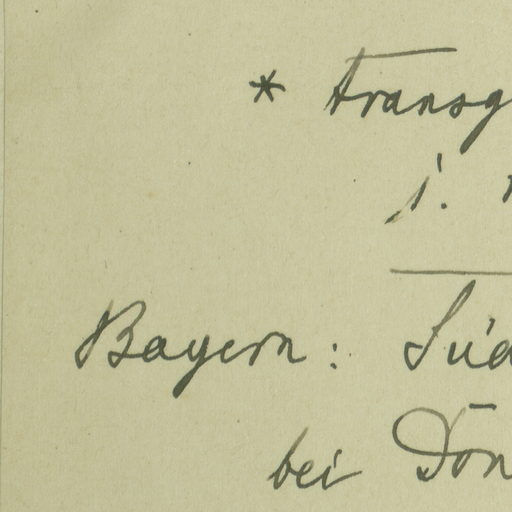 * transg
i.
Bayern: Süd
bei Dön